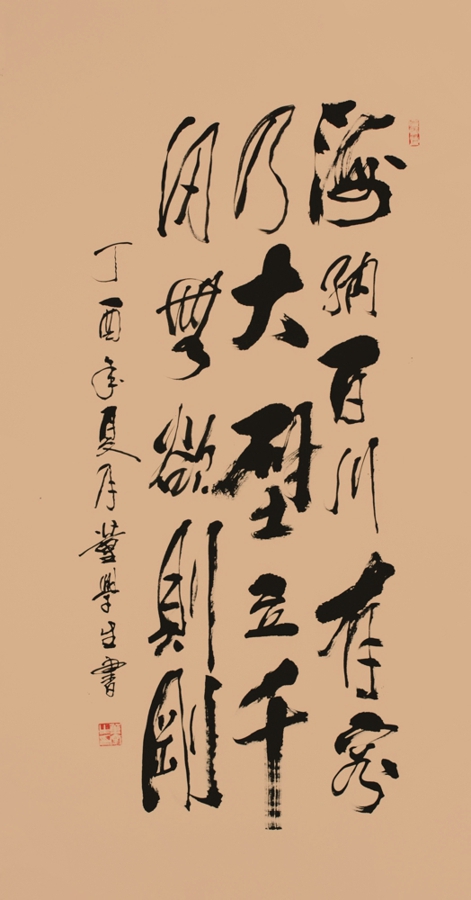 海納百川有容
乃大壁立千
仞無欲則剛
丁酉年夏月董學生書